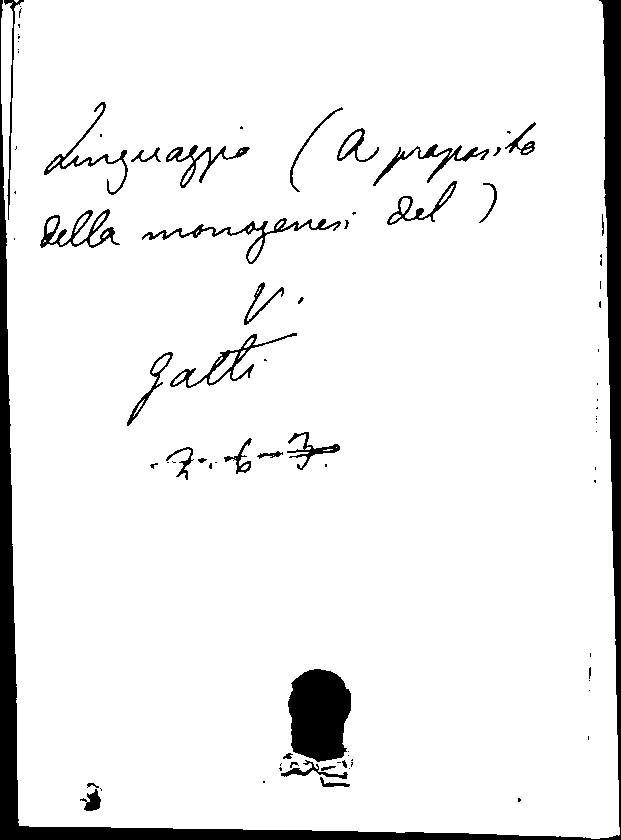 Linguaggio (A proposito
della monogenesi del)
V.
Gatti